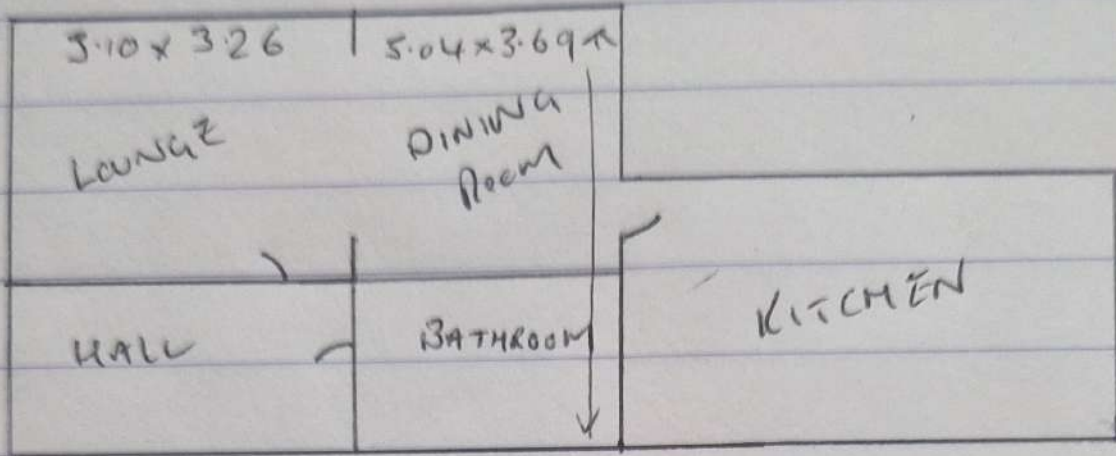 3.10 x 3.26
5.04 x 3.69
LOUNGE
DINING
ROOM
HALL
BATHROOM
KITCHEN